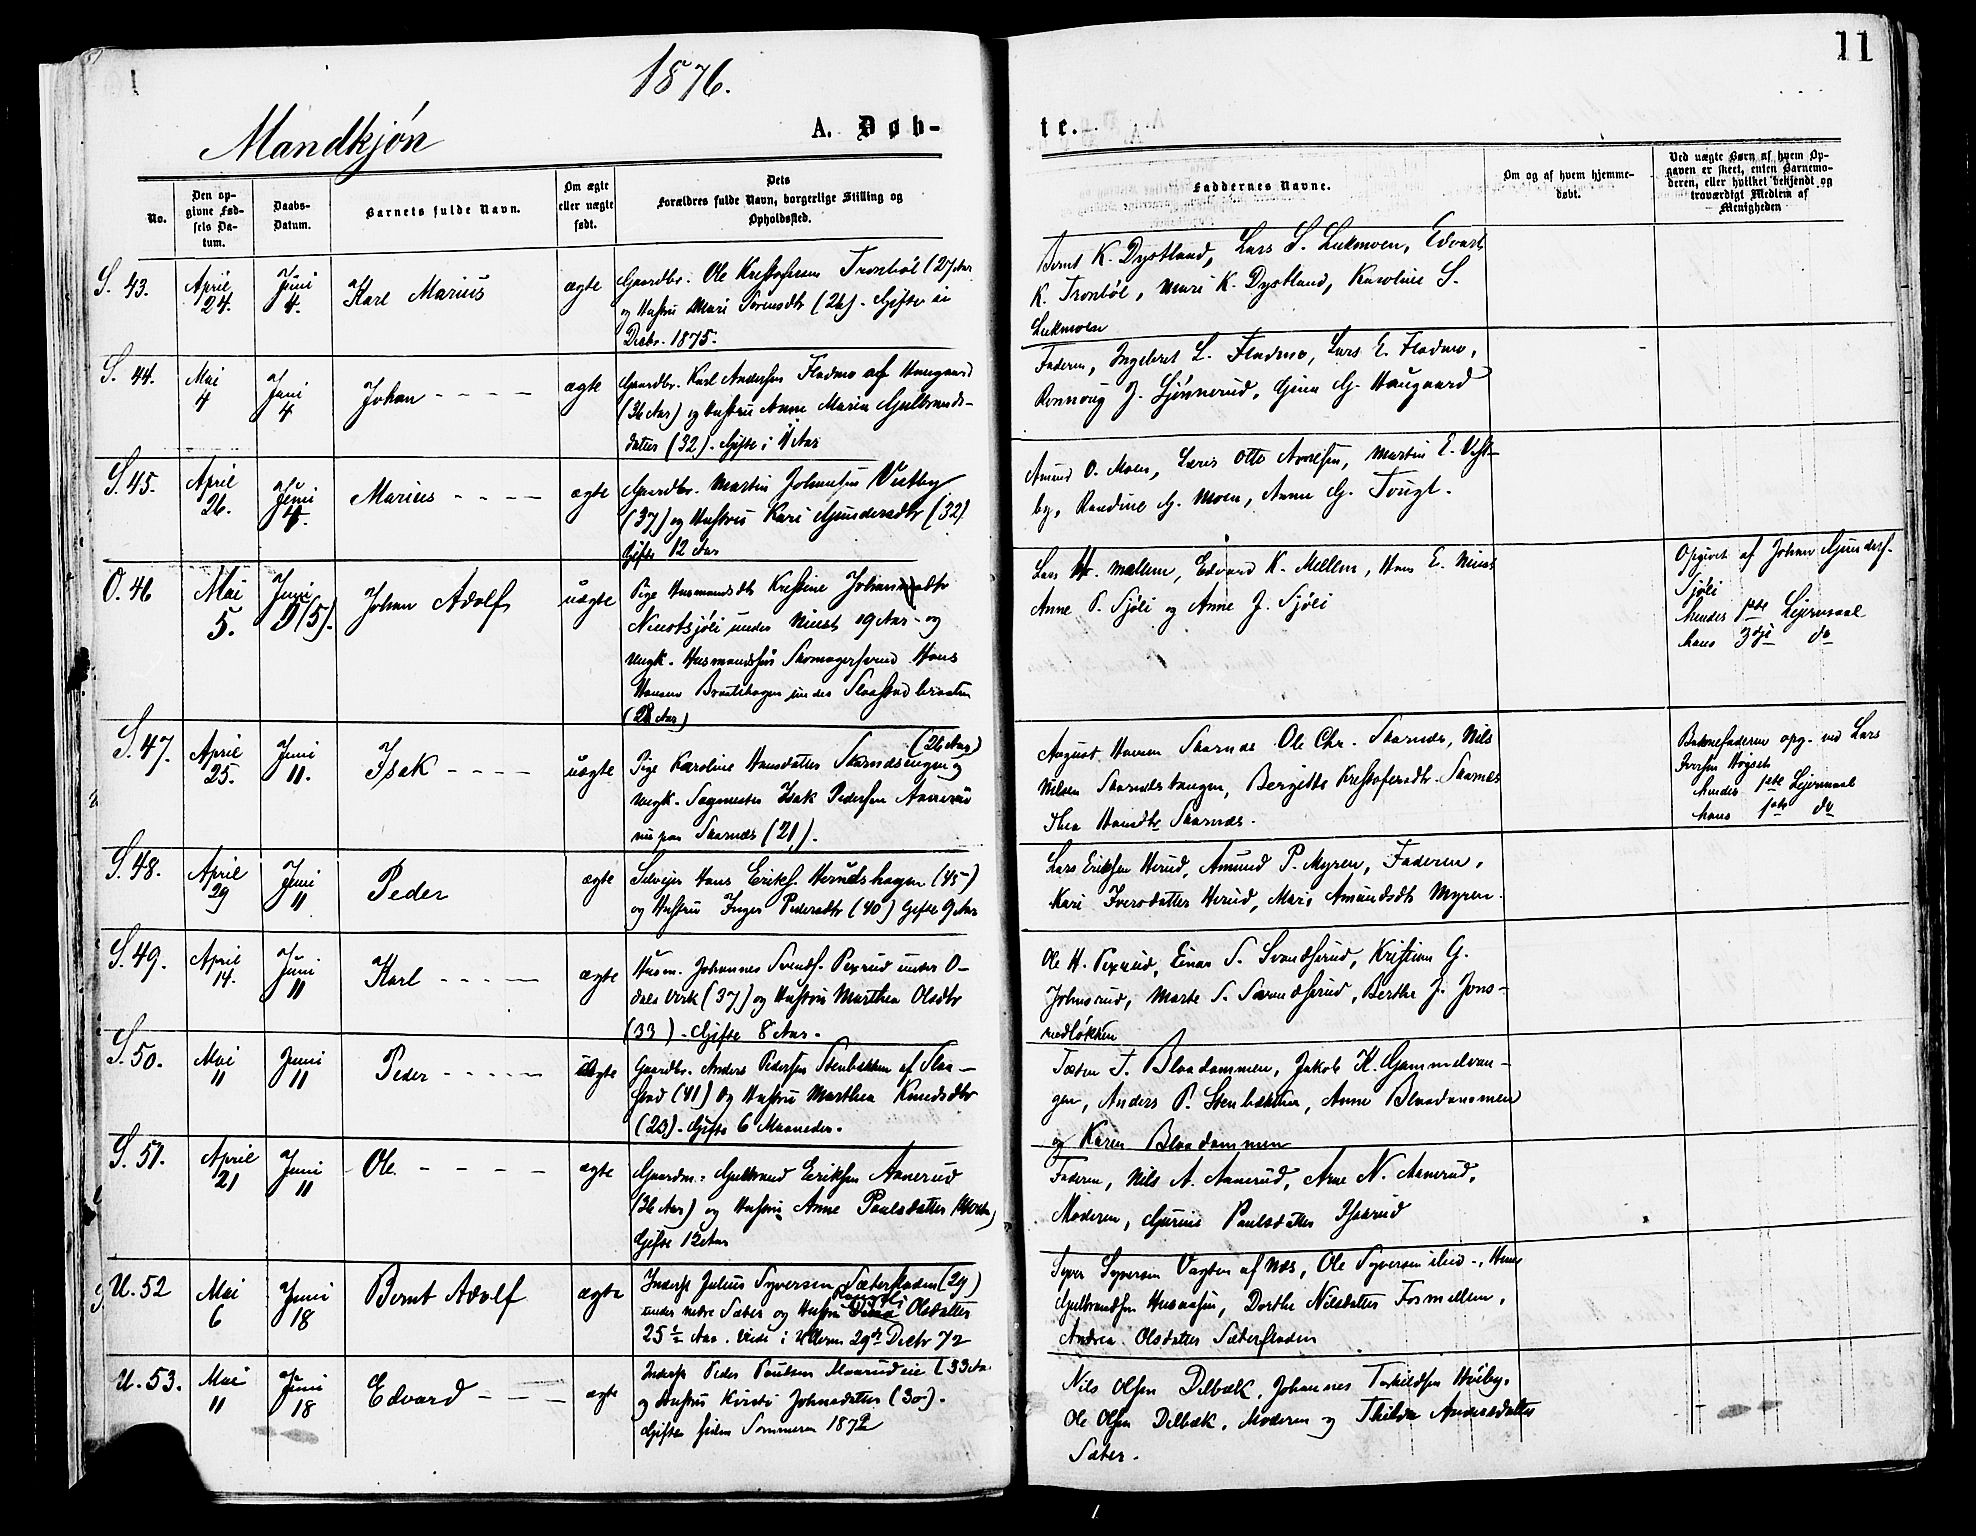 1876.
11
Mandkjøn
A. Døb-
te.
No.
Den op-
givne Fød-
sels Da-
tum.
Daabs-
Datum.
Barnets fulde Navn.
Om ægte
eller uægte
født.
Dets
Forældres fulde Navn, borgerlige Stilling og
Opholdssted.
Faddernes Navne.
Om og af hvem hjemme-
døbt.
Ved uægte Børn af hvem Op-
gaven er skeet, enten Barnemo-
deren, eller hvilket bekjendt og
troværdigt Medlem af
Menigheden
S. 43.
April
24.
Juni
4.
Karl Marius
ægte
Gaardbr. Ole Kristofersen Tronböl (27 Aar
og Hustru Mari Sörensdtr (26). Gifte i
Decbr. 1875.
Bernt K. Dystland, Lars S. Lukmoen, Edvart
K. Tronböl, Mari K. Dystland, Karoline S.
Lukmoen
S. 44.
Mai
4
Juni
4
Johan
ægte
Gaardbr. Karl Andersen Fladmo af Haugaard
(36 Aar) og Hustru Anne Maria Gulbrands-
datter (32). Gifte i 11 Aar
Faderen, Ingebret L. Fladmo, Lars E. Fladmo,
Rønnoug J. Ljönnerud, Gina G. Haugaard
S. 45.
April
26.
Juni
4.
Marius
ægte
Gaardbr. Martin Johnsen Vestby
(37) og Hustru Kari Gundersdtr (32)
Gifte 12 Aar
Amund O. Moen, Lars Otto Arnesen, Martin E. Vest-
by, Randine G. Moen, Anne G. Tougt.
O. 46
Mai
5.
Juni
5 (5).
Johan Adolf
uægte
Pige Husmandsdtr Kristine Johansdtr
Ninstsjöli under Ninst 19 Aar og
Ungk. Husmandssön Skomagersvend Hans
Hansen Braatehagen under Slaastad braaten
(28 Aar)
Lars H. Mellem, Edvard K. Mellem, Hans E. Ninst
Anne P. Sjöli og Anne J. Sjöli
Opgivet af Johan Gunders.
Sjöli
hendes 1ste Leiermaal
hans 3die do
S. 47.
April
25.
Juni
11.
Isak
uægte
(26 Aar)
Pige Karoline Hansdatter Skarnæsengen og
Ungk. Sagmester Isak Pedersen Aanerud
nu paa Skarnæs (21).
August Hansen Skarnæs Ole Chr. Skarnæs, Nils
Nilsen Skarnæstangen, Bergitte Kristofersdtr. Skarnæs
Thea Hansdtr Skarnæs.
Barnefaderen opg. ved Lars
Iversen Hogset
hendes 1ste Leiermaal
hans 1ste do
S. 48.
April
29
Juni
11
Peder
ægte
Selveier Hans Eriks. Herudshagen (45)
og Hustru Inger Pedersdtr (40) Gifte 9 Aar
Lars Eriksen Herud, Amund P. Myren, Faderen,
Kari Iversdatter Herud, Mari Amundsdtr Myren.
S. 49.
April
14.
Juni
11
Karl
ægte
Husm. Johannes Svends. Pexrud under O-
dals Verk (37) og Hustru Marthea Olsdtr
(33). Gifte 8 Aar.
Ole H. Pexrud, Einar S. Svendserud, Kristian G.
Johnsrud, Marte S. Svendserud, Berthe J. Jons-
rudlökken
S. 50.
Mai
11
Juni
11
Peder
ægte
Gaardbr. Anders Pedersen Stenbækken af Slaa-
stad (41) og Hustru Marthea Knudsdtr
(23). Gifte 6 Maaneder.
T. Blaadammen, Jakob K. Gammelvan-
gen, Anders P. Stenbækken, Anne Blaadammen
og Karen Blaadammen
S. 51.
April
21
Juni
11
Ole
ægte
Gaardm. Gulbrand Eriksen Aanerud
(36 Aar) og Hustru Anne Paulsdatter
Gifte 12 Aar
Faderen, Nils A. Aanerud, Arne N. Aanerud,
Moderen, Gurine Paulsdatter Isaerud
U. 52
Mai
6
Juni
18
Bernt Adolf
ægte
Inderst Julius Syversen Sæterstaden (29)
under nedre Sæter og Hustru Olsdatter
25½ Aar. Viede i Ullern 29de Decbr 72
Syver Syversen Vagten af Næs, Ole Syversen ibid., Hans
Gulbrandsen Husaasen, Dorthe Nilsdatter Formellem,
Andrea Olsdatter Sæterstaden
U. 53.
Mai
11
Juni
18
Edvard
ægte
Inderst Peder Paulsen Maarudeie (33 Aar
og Hustru Kirsti Johnsdatter (30).
Gifte siden Sommeren 1872
Nils Olsen Delbæk, Johannes Torkildsen Huiby,
Ole Olsen Delbæk, Moderen og Thilda Andersdatter
Sæter.